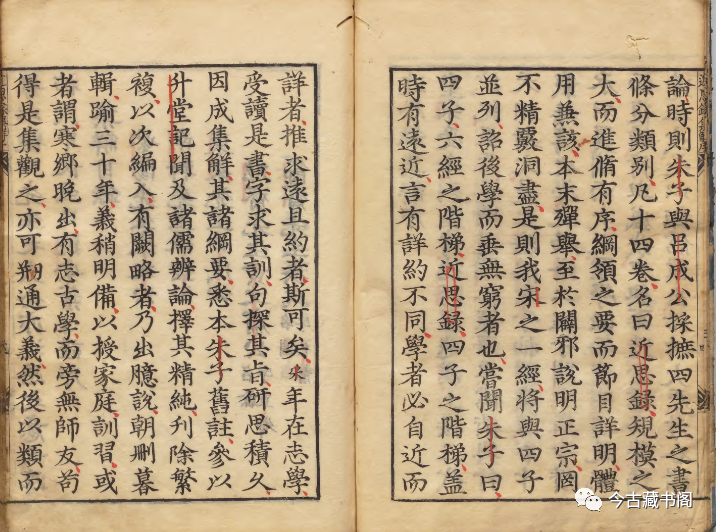 論時則朱子與呂成公採摭四先生之書
條分類別凡十四卷名曰近思録規模之
大而進脩有序綱領之要而節目詳明體
用兼該本末殫舉至於闢邪說明正宗罔
不精覈洞盡是則我宋之一經將與四子
並列詔後學而垂無窮者也嘗聞朱子曰
四子六經之階梯近思録四子之階梯蓋
時有遠近言有詳約不同學者必自近而
詳者推求遠且約者斯可矣采年在志學
受讀是書字求其訓句探其旨研思積久
因成集解其諸綱要悉本朱子舊註參以
升堂記聞及諸儒辨論擇其精純刋除繁
複以次編入有闕略者乃出臆說朝刪暮
輯踰三十年義稍明備以授家庭訓習或
者謂寒鄉晚出有志古學而旁無師友苟
得是集觀之亦可剏通大義然後以類而
今古藏书阁